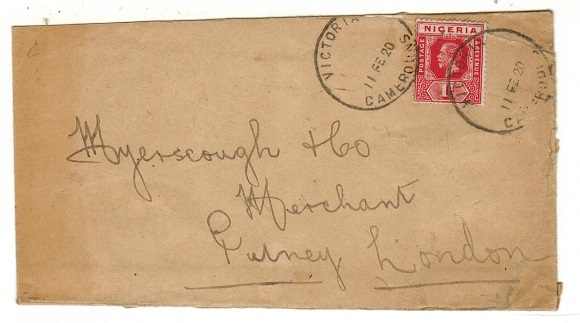 VICTORIA
11 FE 20
CAMEROONS
NIGERIA
POSTAGE
& REVENUE
1
11 FE 20
Myerscough & Co
Merchant
Putney London